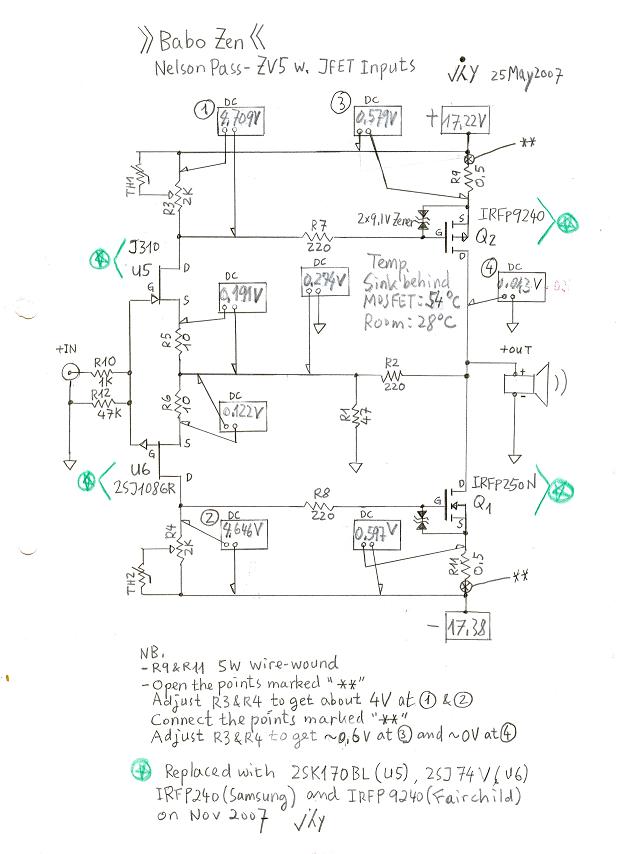 》Babo Zen《
Nelson Pass- ZV5 w. JFET Inputs
jhy 25May2007
① DC
4,709V
③ DC
0,579V
+ 17,22V
**
TH1
R3 2K
R9 0,5
2x9,1V Zener
IRFP9240
S
G
D
Q2
R7
220
J310
U5
D
G
S
DC
0,191V
DC
0,274V
Temp
Sink behind
MOSFET: 54°C
Room: 28°C
④ DC
0,013V
R5 10
+IN
R10
1K
R12
47K
R2
220
+OUT
+
-
R6 10
0,122V
R1 47
S
G
D
U6
2SJ108GR
D
G
S
IRFP250N
Q1
R8
220
R4 2K
② DC
4,646V
DC
0,597V
TH2
R11 0,5
**
- 17,38
NB.
- R9&R11 5W wire-wound
- Open the points marked "**"
Adjust R3&R4 to get about 4V at ① & ②
Connect the points marked "**"
Adjust R3&R4 to get ~0,6V at ③ and ~0V at ④
Replaced with 2SK170BL (U5), 2SJ74V (U6)
IRFP240 (Samsung) and IRFP9240 (Fairchild)
on Nov 2007 jhy